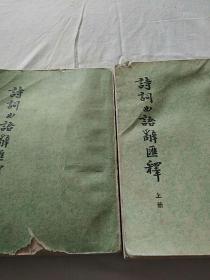 詩詞曲語辭匯
詩詞曲語辭匯釋
上册